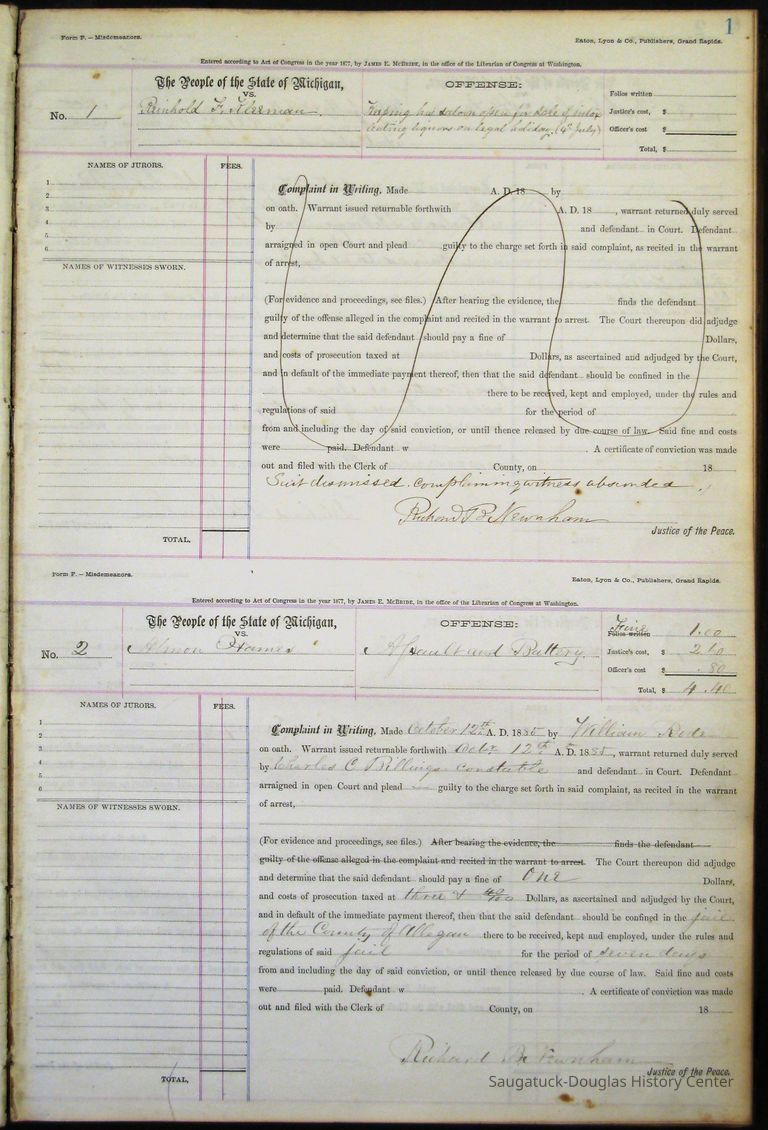 1
Form F. – Misdemeanors.
Eaton, Lyon & Co., Publishers, Grand Rapids.
Entered according to Act of Congress in the year 1877, by JAMES E. McBRIDE, in the office of the Librarian of Congress at Washington.
No. 1
The People of the State of Michigan,
VS.
Reinhold F. Klerman.
OFFENSE:
Keeping his saloon open for sale of intox
icating liquors on legal holiday. (4th July)
Folios written
Justice's cost, $
Officer's cost $
Total, $
NAMES OF JURORS. FEES.
1
2
3
4
5
6
NAMES OF WITNESSES SWORN.
TOTAL,
Complaint in Writing, Made A. D. 18 by
on oath. Warrant issued returnable forthwith A. D. 18 , warrant returned duly served
by and defendant in Court. Defendant
arraigned in open Court and plead guilty to the charge set forth in said complaint, as recited in the warrant
of arrest,
(For evidence and proceedings, see files.) After hearing the evidence, the finds the defendant
guilty of the offense alleged in the complaint and recited in the warrant to arrest. The Court thereupon did adjudge
and determine that the said defendant should pay a fine of Dollars,
and costs of prosecution taxed at Dollars, as ascertained and adjudged by the Court,
and in default of the immediate payment thereof, then that the said defendant should be confined in the
there to be received, kept and employed, under the rules and
regulations of said for the period of
from and including the day of said conviction, or until thence released by due course of law. Said fine and costs
were paid. Defendant w . A certificate of conviction was made
out and filed with the Clerk of County, on 18
Suit dismissed. complaining witness absconded
Richard B. Newnham
Justice of the Peace.
Form F. – Misdemeanors.
Eaton, Lyon & Co., Publishers, Grand Rapids.
Entered according to Act of Congress in the year 1877, by JAMES E. McBRIDE, in the office of the Librarian of Congress at Washington.
No. 2
The People of the State of Michigan,
VS.
Almon Hames
OFFENSE:
Assault and Battery.
Fine
Folios written 1.00
Justice's cost, $ 2.60
Officer's cost $ .80
Total, $ 4.40
NAMES OF JURORS. FEES.
1
2
3
4
5
6
NAMES OF WITNESSES SWORN.
TOTAL,
Complaint in Writing, Made October 12th A. D. 1885 by William
on oath. Warrant issued returnable forthwith Octbr 12th A. D. 1885, warrant returned duly served
by Charles C Billings constable and defendant in Court. Defendant
arraigned in open Court and plead — guilty to the charge set forth in said complaint, as recited in the warrant
of arrest,
(For evidence and proceedings, see files.) After hearing the evidence, the finds the defendant
guilty of the offense alleged in the complaint and recited in the warrant to arrest. The Court thereupon did adjudge
and determine that the said defendant should pay a fine of One Dollars,
and costs of prosecution taxed at three & 40/100 Dollars, as ascertained and adjudged by the Court,
and in default of the immediate payment thereof, then that the said defendant should be confined in the jail
of the County of Allegan there to be received, kept and employed, under the rules and
regulations of said jail for the period of seven days
from and including the day of said conviction, or until thence released by due course of law. Said fine and costs
were paid. Defendant w . A certificate of conviction was made
out and filed with the Clerk of County, on 18
Richard B. Newnham
Justice of the Peace.
Saugatuck-Douglas History Center